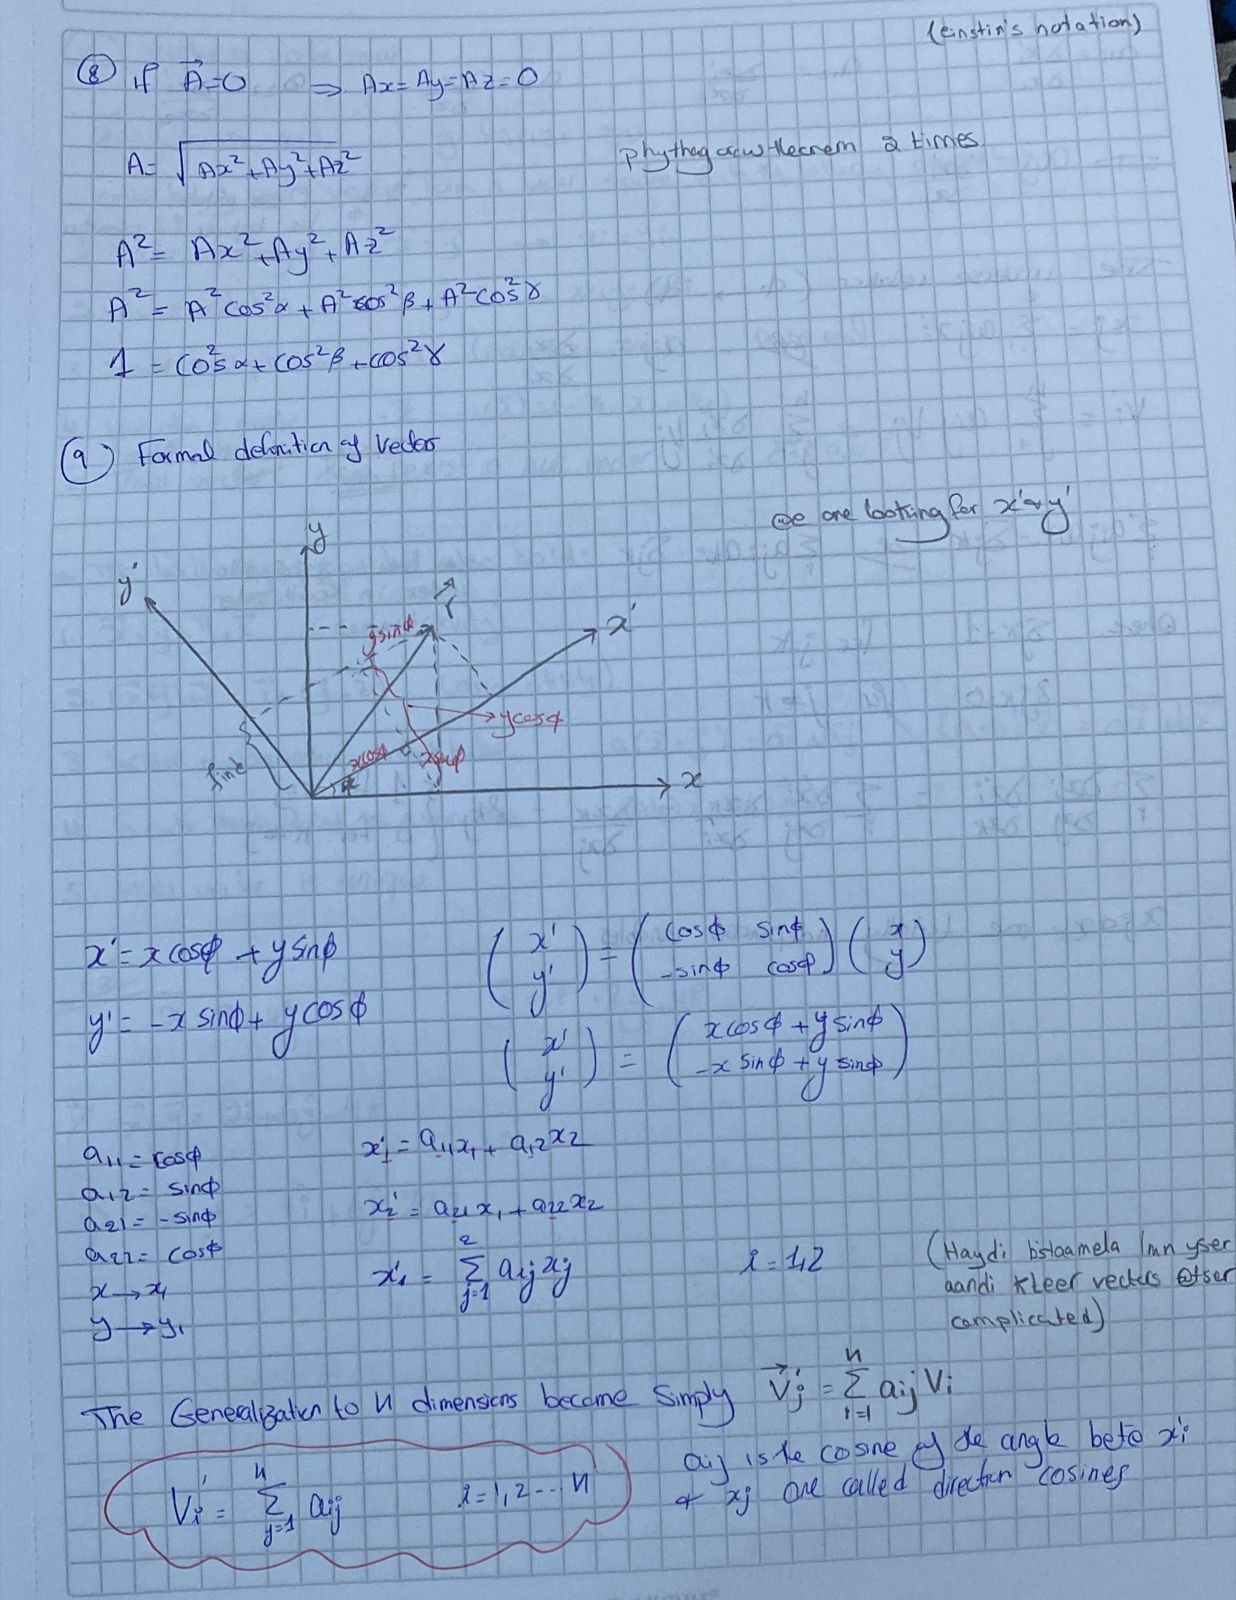 (einstin's notation)
⑧ if A⃗=0 ⇒ Ax=Ay=Az=0
A= √(Ax²+Ay²+Az²)
2 times
A²= Ax²+Ay²+Az²
A²= A²cos²α+A²cos²β+A²cos²γ
1 = cos²α+cos²β+cos²γ
⑨ Formal definition of vector
we are looking for x' & y'
y
y'
r⃗
x'
ysinϕ
ycosϕ
xcosϕ
xsinϕ
find
x
x'=xcosϕ +ysinϕ
y'=-x sinϕ+ ycosϕ
(x' y') = (cosϕ sinϕ -sinϕ cosϕ) (x y)
(x' y') = (xcosϕ+ysinϕ -x sinϕ+y sinϕ)
a11=cosϕ
a12= sinϕ
a21=-sinϕ
a22= cosϕ
x→x1
y→y1
x'1=a11x1+ a12x2
x2'= a21x1+a22x2
x'1= Σ²j=1 aijxj i=1,2
(Haydi bistaamela lmn yser
aandi kteer vectors otser
complicated)
The Generalization to N dimensions become simply V⃗'j=Σᴺi=1 aij Vi
Vi'= Σᴺy=1 aij i=1,2---N
aij is the cosine of the angle beto x'i
& xj are called direction cosines